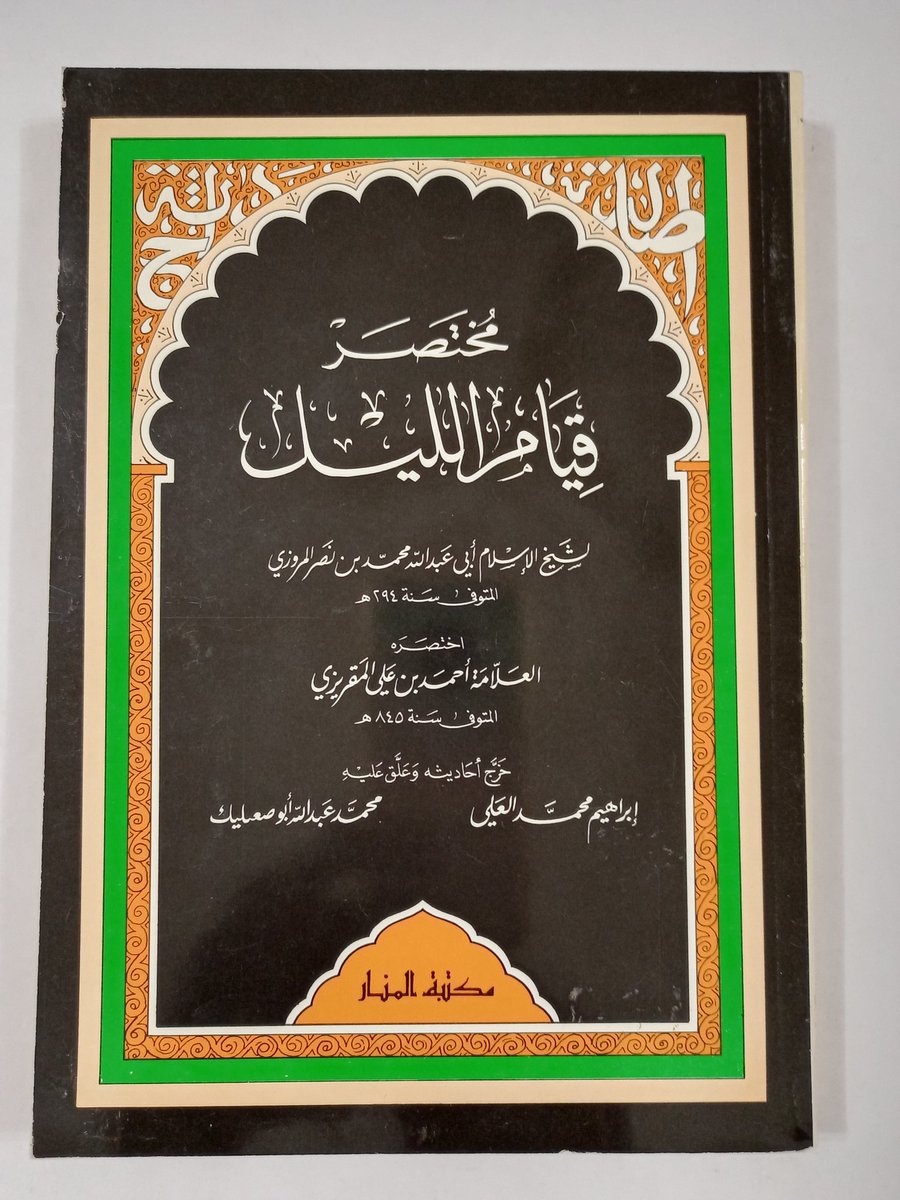 أصالة
جديّة
مُختَصَر
قِيَام الليْل
لشَيخ الإسْلام أبي عَبدالله محمّد بن نصَر المروزي
المتوفى سَنة ٢٩٤ هـ
اختصَرَه
العَلاّمَة أحمَد بن عَلي المَقريزي
المتوفى سَنة ٨٤٥ هـ
خَرَّج أحَاديثه وَعَلَّق عَليْهِ
إبراهيم محمَّد العَلي
محمَّد عَبدالله أبو صعيليك
مكتبة المنار